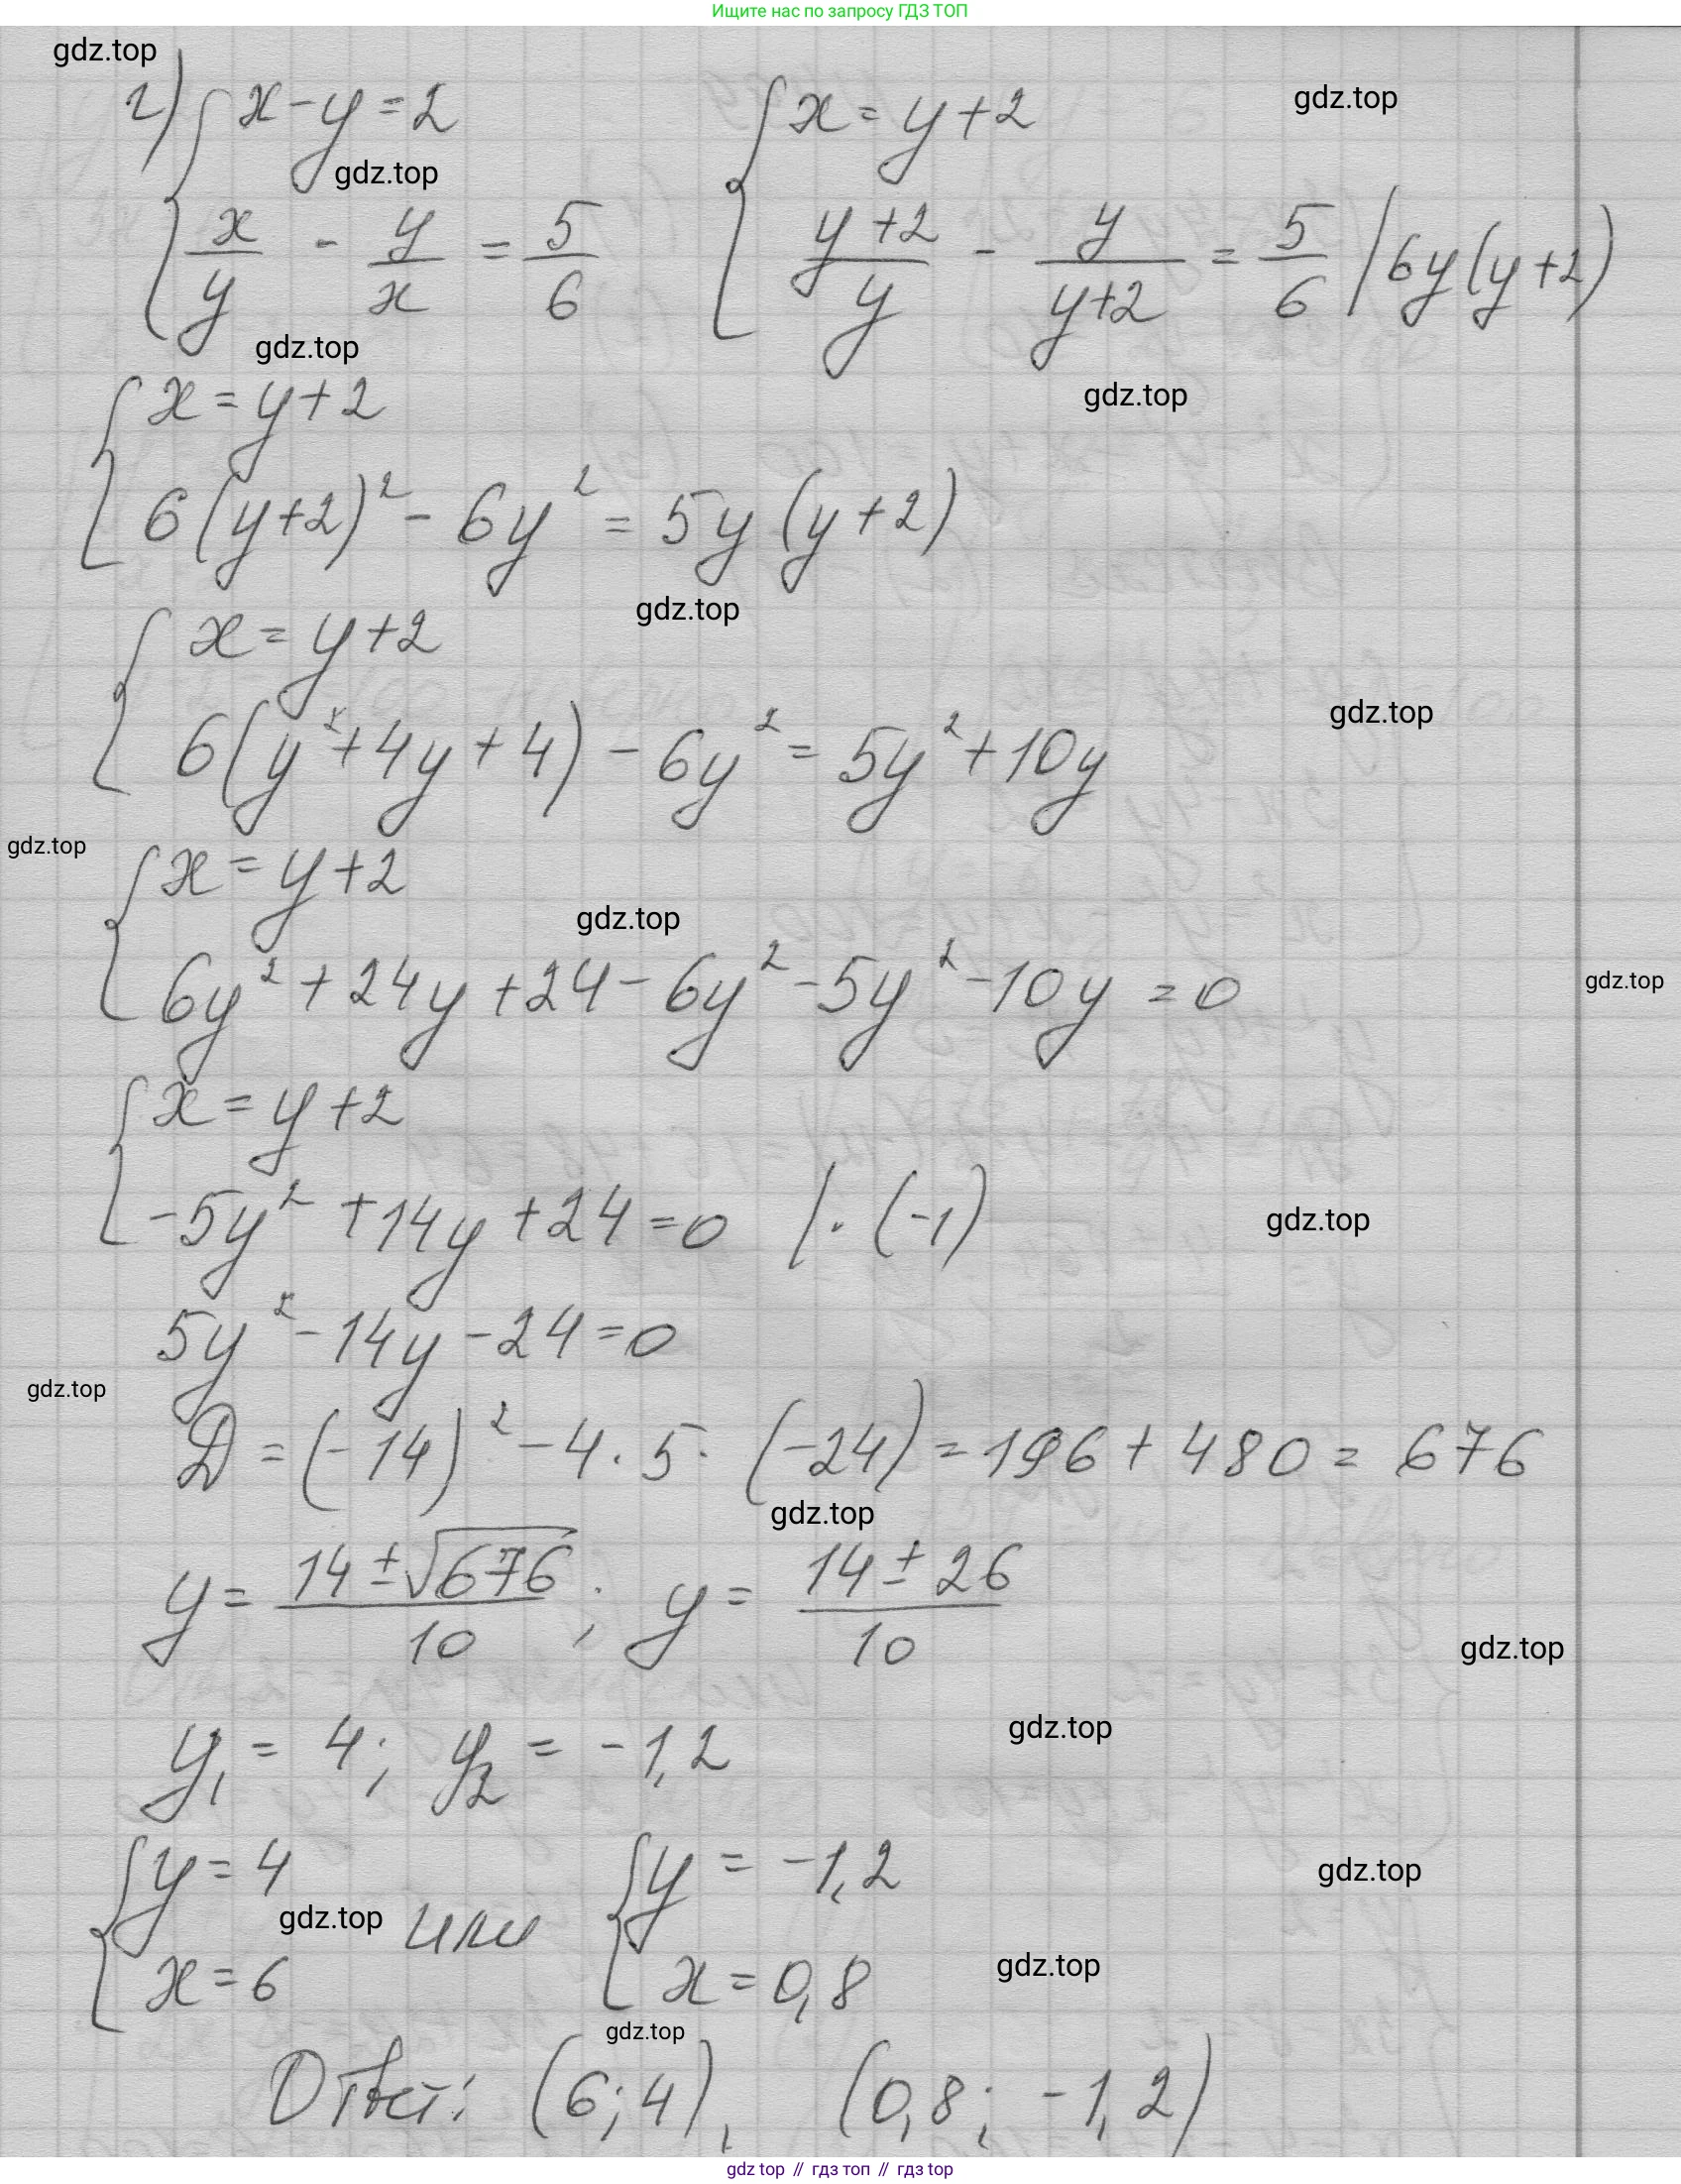 Ищите нас по запросу ГДЗ ТОП
gdz.top
г) { x - y = 2        { x = y + 2
gdz.top
gdz.top
{ x/y - y/x = 5/6        { (y+2)/y - y/(y+2) = 5/6 | 6y(y+2)
gdz.top
gdz.top
{ x = y + 2
{ 6(y+2)² - 6y² = 5y(y+2)
gdz.top
{ x = y + 2
gdz.top
{ 6(y² + 4y + 4) - 6y² = 5y² + 10y
gdz.top
{ x = y + 2
gdz.top
{ 6y² + 24y + 24 - 6y² - 5y² - 10y = 0
gdz.top
{ x = y + 2
{ -5y² + 14y + 24 = 0 | · (-1)
gdz.top
5y² - 14y - 24 = 0
gdz.top
D = (-14)² - 4 · 5 · (-24) = 196 + 480 = 676
gdz.top
y = (14 ± √676)/10 ; y = (14 ± 26)/10
gdz.top
y₁ = 4; y₂ = -1,2
gdz.top
{ y = 4        { y = -1,2
gdz.top
gdz.top
или
gdz.top
{ x = 6        { x = 0,8
gdz.top
Ответ: (6; 4), (0,8; -1,2)
gdz top // гдз топ // гдз top